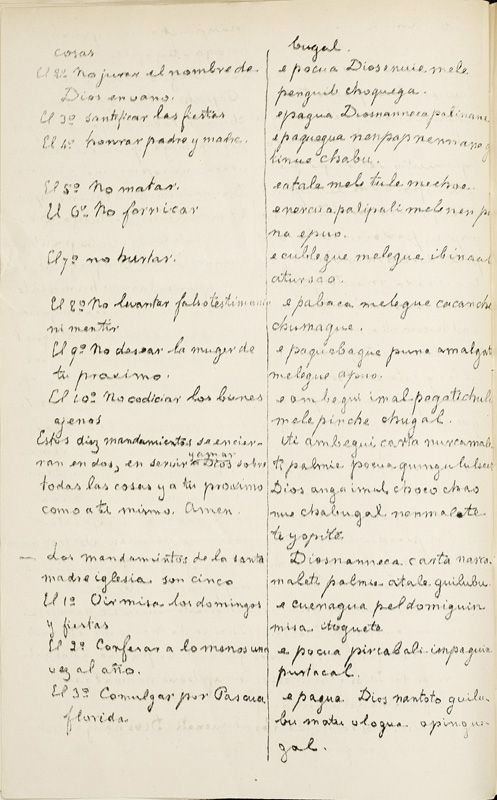 cosas
El 2º No jurar el nombre de
Dios en vano.
El 3º santificar las fiestas
El 4º honrar padre y madre.
El 5º No matar.
El 6º No fornicar
El 7º no hurtar.
El 8º No levantar falso testimonio
ni mentir
El 9º No desear la muger de
tu proximo.
El 10º No codiciar los bienes
agenos
Estos diez mandamientos se encier-
ran en dos, en servir y amar a Dios sobre
todas las cosas y a tu proximo
como a ti mismo. Amen.
— Los mandamientos de la santa
madre iglesia son cinco
El 1º Oir misa los domingos
y fiestas
El 2º Confesar a lo menos una
vez al año.
El 3º Comulgar por Pascua
florida
bugal.
e pocua Dios enuie mele
penguil choquega.
epagua Diosnanneca palinane
epaquequa nanpapnennano
linue chabu.
eatale mele tule mechoe.
enercua palipali mele nen pu
na epuo.
ecublegue melegue ibinaal
atursao.
e pabaca melegue cacanche
chumaque.
e paquebaque puna amalgat
melegue apuo.
e ambegui imal pogatichule
mele pinche chugal.
iti ambegui carta nurcamale
ti palmie pocua quingu
Dios anga imal choco chao
nue chabugal nenmalete
te yopite.
Diosnanneca carta narco
malet palmie atale quilubu
e cuenagua pel domiguin
misa itoguete
e pocua pircabali
purtacal.
e pagua Dios nantoto quilu
bu matu ologua opingue
gal.